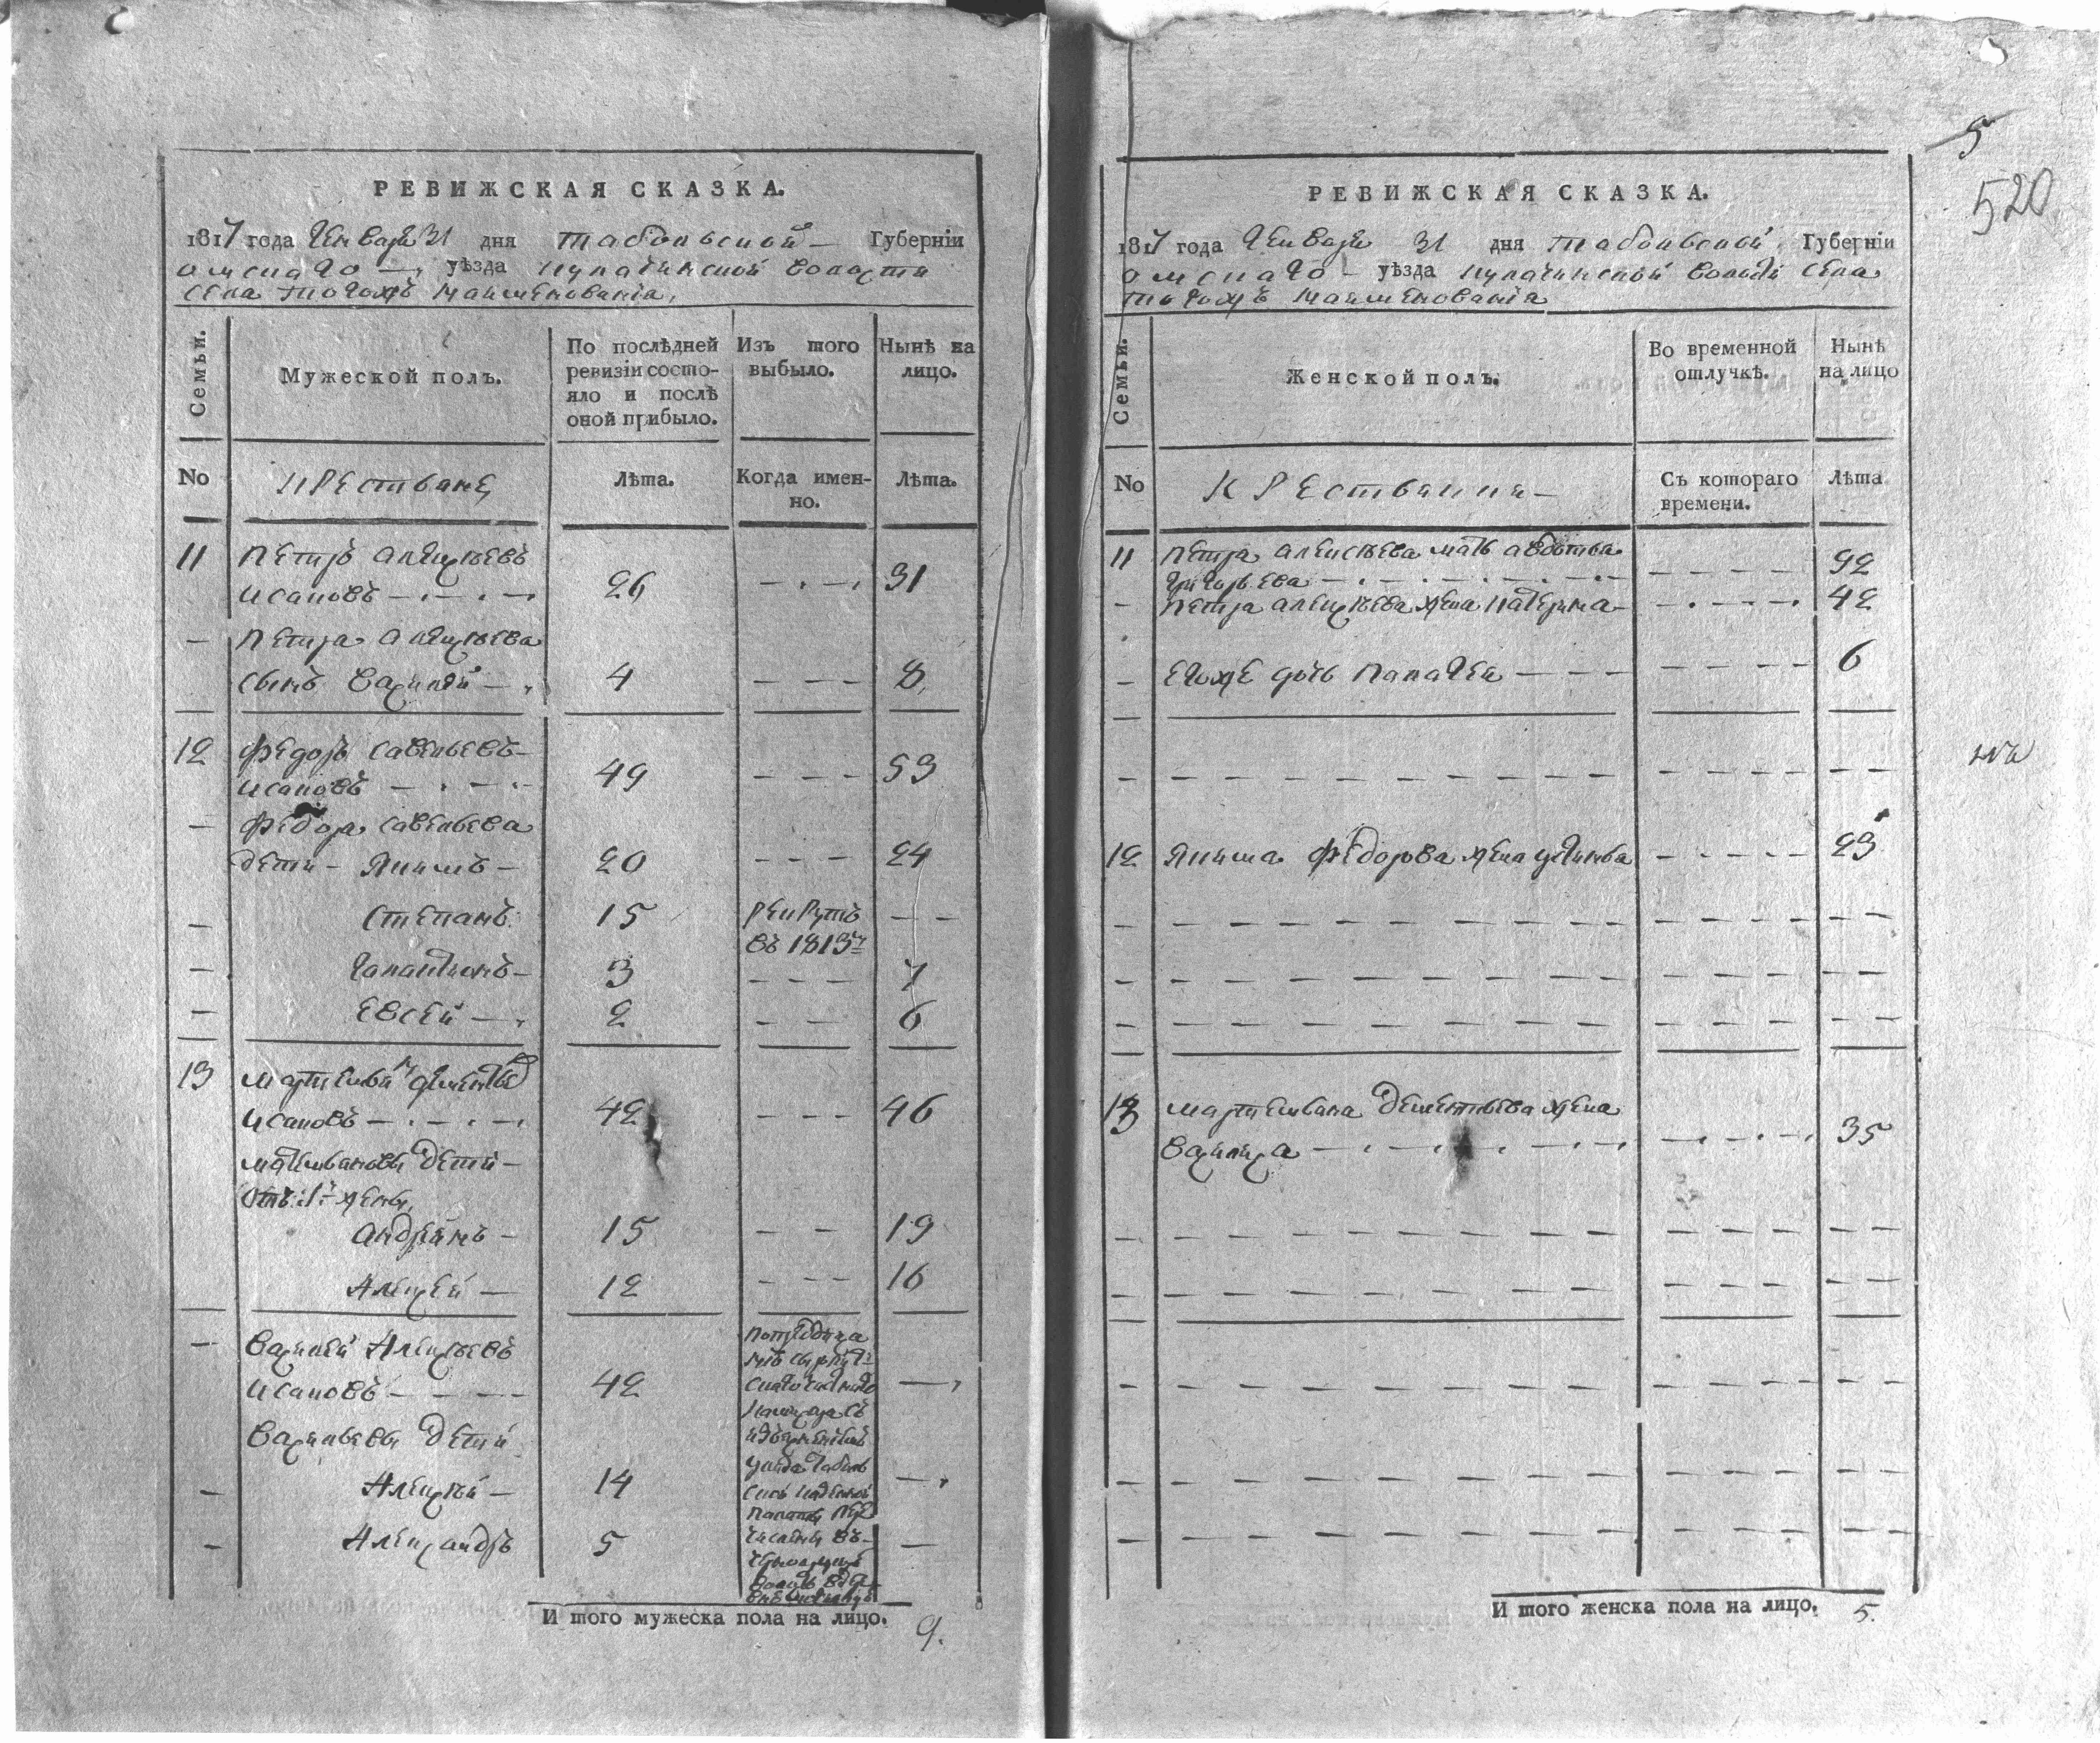 РЕВИЖСКАЯ СКАЗКА.
1817 года Генваря 31 дня Табольской Губерніи
омскаго уѣзда кулачинской волости
села тогожъ наименованія,
Семьи.
Мужеской полъ.
По послѣдней ревизіи состояло и послѣ оной прибыло.
Изъ того выбыло.
Нынѣ на лицо.
No
крестьяне
Лѣта.
Когда именно.
Лѣта.
11 Петръ алексѣевъ
исаковъ 26 31
Петра алексѣева
сынъ василей 4 8
12 Федоръ савельевъ
исаковъ 49 53
Федора савельева
дети Якимъ 20 24
степанъ 15 рекрутъ
въ 1813г
галактионъ 3 7
евсей 2 6
13 мартемьянъ дементьев
исаковъ 42 46
мартемьяновы дети
отъ 1й жены
андреянъ 15 19
Алексей 12 16
василей Алексѣевъ
исаковъ 42
васильевы дети
Алексѣй 14
Александръ 5
И того мужеска пола на лицо. 9.
5
520
РЕВИЖСКАЯ СКАЗКА.
1817 года Генваря 31 дня табольской Губерніи
омскаго уѣзда кулачинской волости села
тогожъ наименованія
Семьи.
Женской полъ.
Во временной отлучкѣ.
Нынѣ на лицо
No
крестьянки
Съ котораго времени.
Лѣта
11 Петра алексѣева мать авдотья
григорьева 92
Петра алексѣева жена катерина 42
егоже дочь палагея 6
12 Якима Федорова жена устинья 23
13 мартемьяна дементьева жена
василиса 35
И того женска пола на лицо. 5.